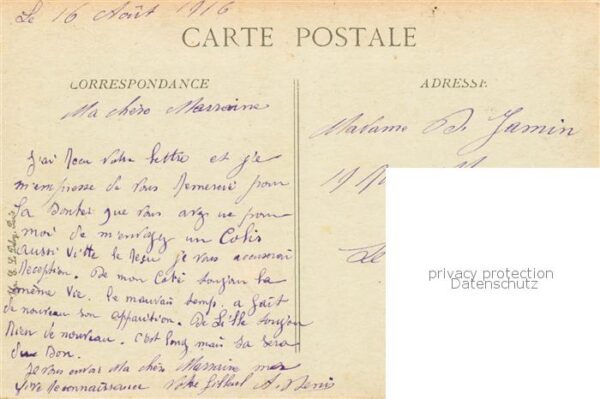 Le 16 Août 1916
CARTE POSTALE
CORRESPONDANCE
ADRESSE
Ma chère Marraine
Madame D. Jamin
J'ai Recu votre lettre et j'e
m'empresse de vous Remercié pour
la Bontée que vous avez ue pour
moi de m'envoyez un Colis
aussi vitte le Resu je vous accuserai
Reception. De mon Coté toujour la
même vie. le mauvais temps a fait
de nouveau son apparition. De Lille toujour
Rien de nouveau. C'est long mais sa sera
du Bon.
Je vous envoi Ma chère Marraine mes
vive Reconnaissance votre filleul A. Denis
19
Le
privacy protection
Datenschutz